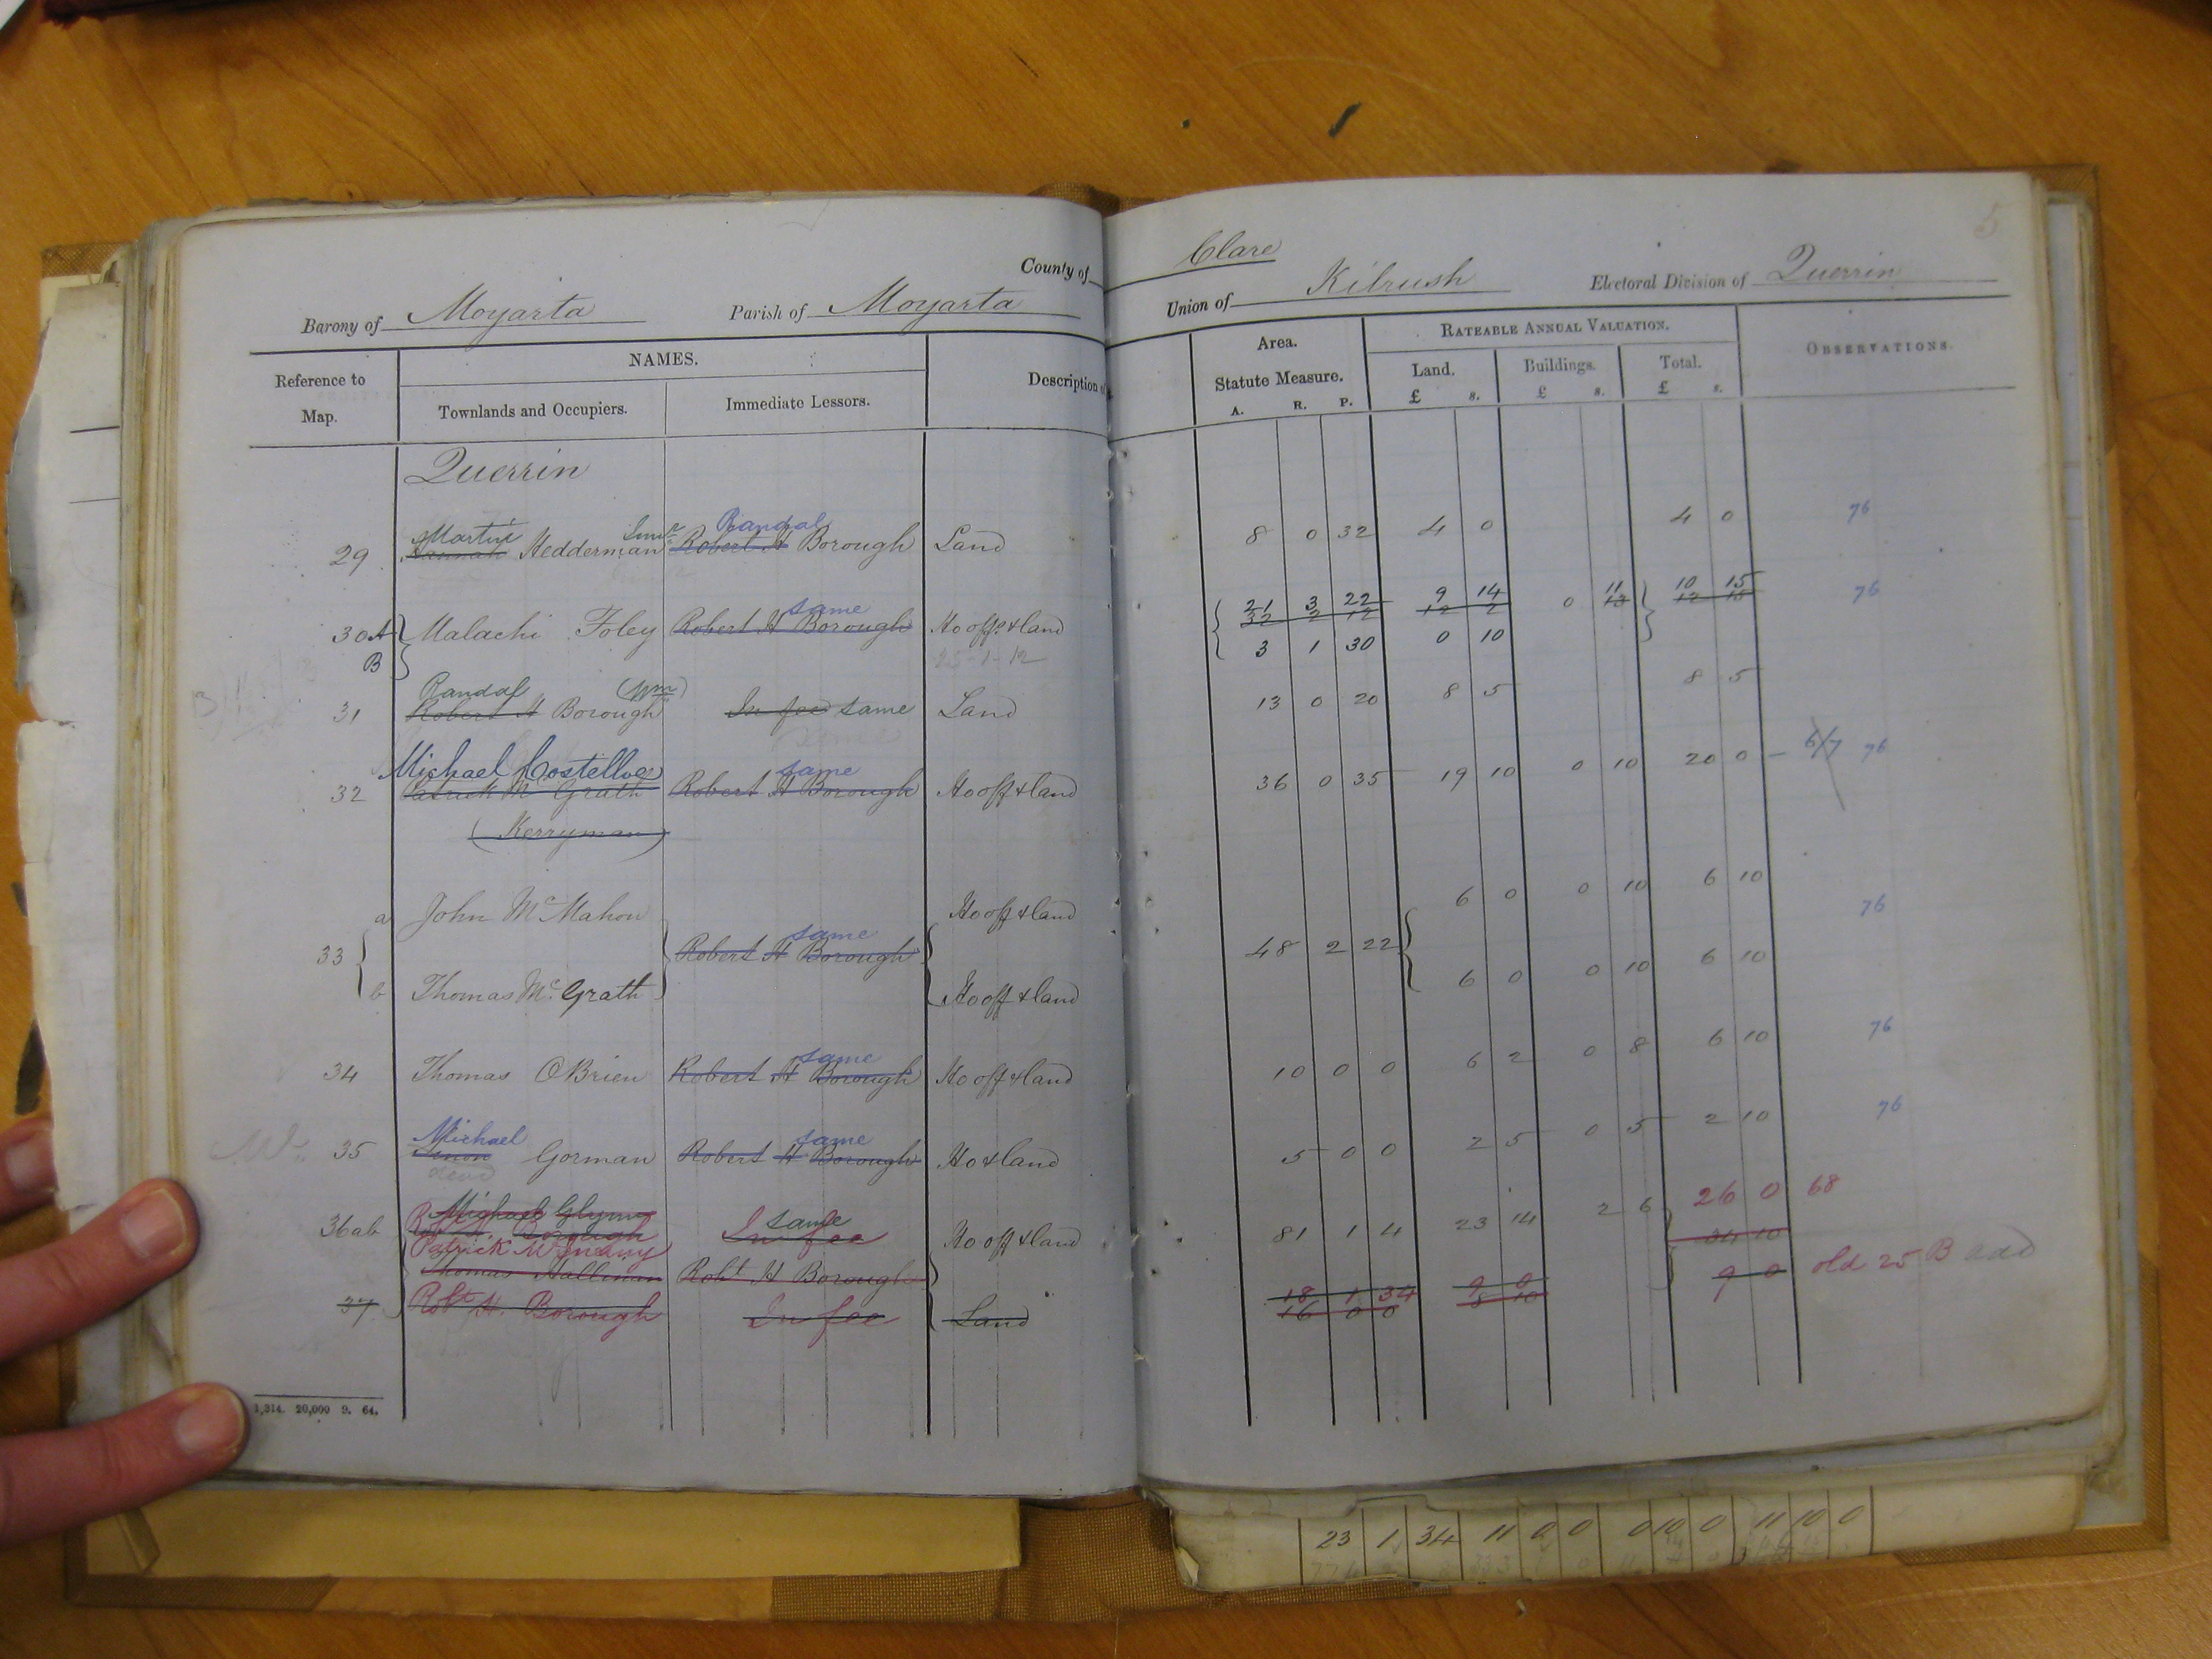 5
County of Clare
Barony of Moyarta Parish of Moyarta Union of Kilrush Electoral Division of Querrin
Reference to Map. NAMES. Description of Area. RATEABLE ANNUAL VALUATION. OBSERVATIONS.
Townlands and Occupiers. Immediate Lessors. Statute Measure. Land. Buildings. Total.
A. R. P. £ s. £ s. £ s.
Querrin
Martin Randal
29 Hannah Hedderman Robert H Borough Land 8 0 32 4 0 4 0 76
same 21 3 22 9 14 11 10 15
30 A Malachi Foley Robert H Borough Ho offs & land 32 2 12 12 2 0 13 12 15 76
B 3 1 30 0 10
23-1-12
Randal (Wm)
31 Robert H Borough In fee same Land 13 0 20 8 5 8 5
Michael Costelloe same
32 Patrick Mc Grath Robert H Borough Ho off & land 36 0 35 19 10 0 10 20 0 - 6/7 76
(Kerryman)
a John McMahon Ho off & land 6 0 0 10 6 10
33 same 48 2 22 76
Robert H Borough
b Thomas Mc Grath Ho off & land 6 0 0 10 6 10
same
34 Thomas OBrien Robert H Borough Ho off & land 10 0 0 6 2 0 8 6 10 76
Michael same
35 Sinon Gorman Robert H Borough Ho & land 5 0 0 2 5 0 5 2 10 76
dead
Michael Glynn same 26 0 68
36ab Robt. H. Borough In fee Ho off & land 81 1 4 23 14 2 6 34 10
Patrick
Thomas Hallinan Robt H Borough 18 1 34 9 0 9 0 old 25 B add
37 Robt H. Borough In fee Land 16 0 0 8 10
1,314. 20,000 9. 64.
23 1 34 11 0 0 0 10 0 11 10 0